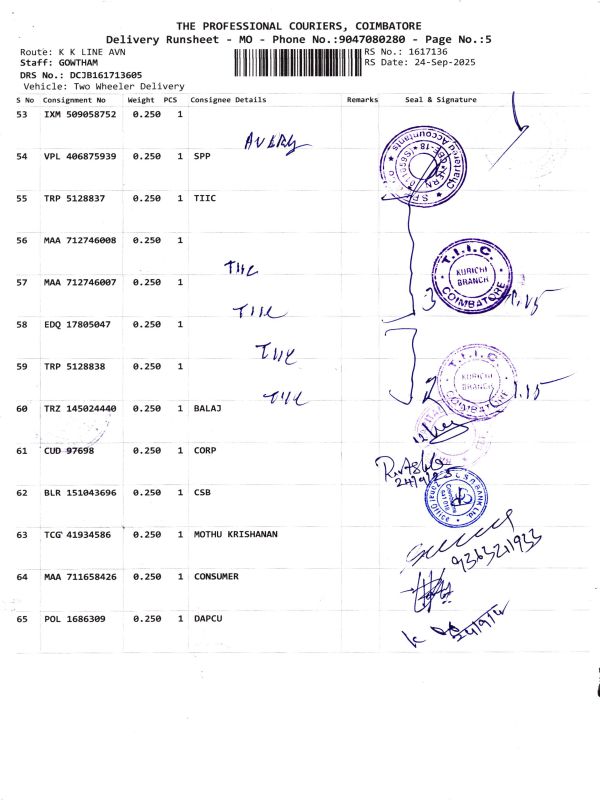 THE PROFESSIONAL COURIERS, COIMBATORE
Delivery Runsheet - MO - Phone No.:9047080280 - Page No.:5
Route: K K LINE AVN
RS No.: 1617136
Staff: GOWTHAM
RS Date: 24-Sep-2025
DRS No.: DCJB161713605
Vehicle: Two Wheeler Delivery
S No Consignment No Weight PCS Consignee Details Remarks Seal & Signature
53 IXM 509058752 0.250 1
AVERY
54 VPL 406875939 0.250 1 SPP
Chartered Accountants
55 TRP 5128837 0.250 1 TIIC
56 MAA 712746008 0.250 1
TIIC
T.I.I.C.
KURICHI
BRANCH
COIMBATORE
57 MAA 712746007 0.250 1
3 1.15
TIIC
58 EDQ 17805047 0.250 1
TIIC
T.I.I.C.
KURICHI
BRANCH
COIMBATORE
59 TRP 5128838 0.250 1
2 1.15
TIIC
60 TRZ 145024440 0.250 1 BALAJ
61 CUD 97698 0.250 1 CORP
24/9/25
62 BLR 151043696 0.250 1 CSB
CSB BANK Ltd.
63 TCG 41934586 0.250 1 MOTHU KRISHANAN
9363211933
64 MAA 711658426 0.250 1 CONSUMER
65 POL 1686309 0.250 1 DAPCU